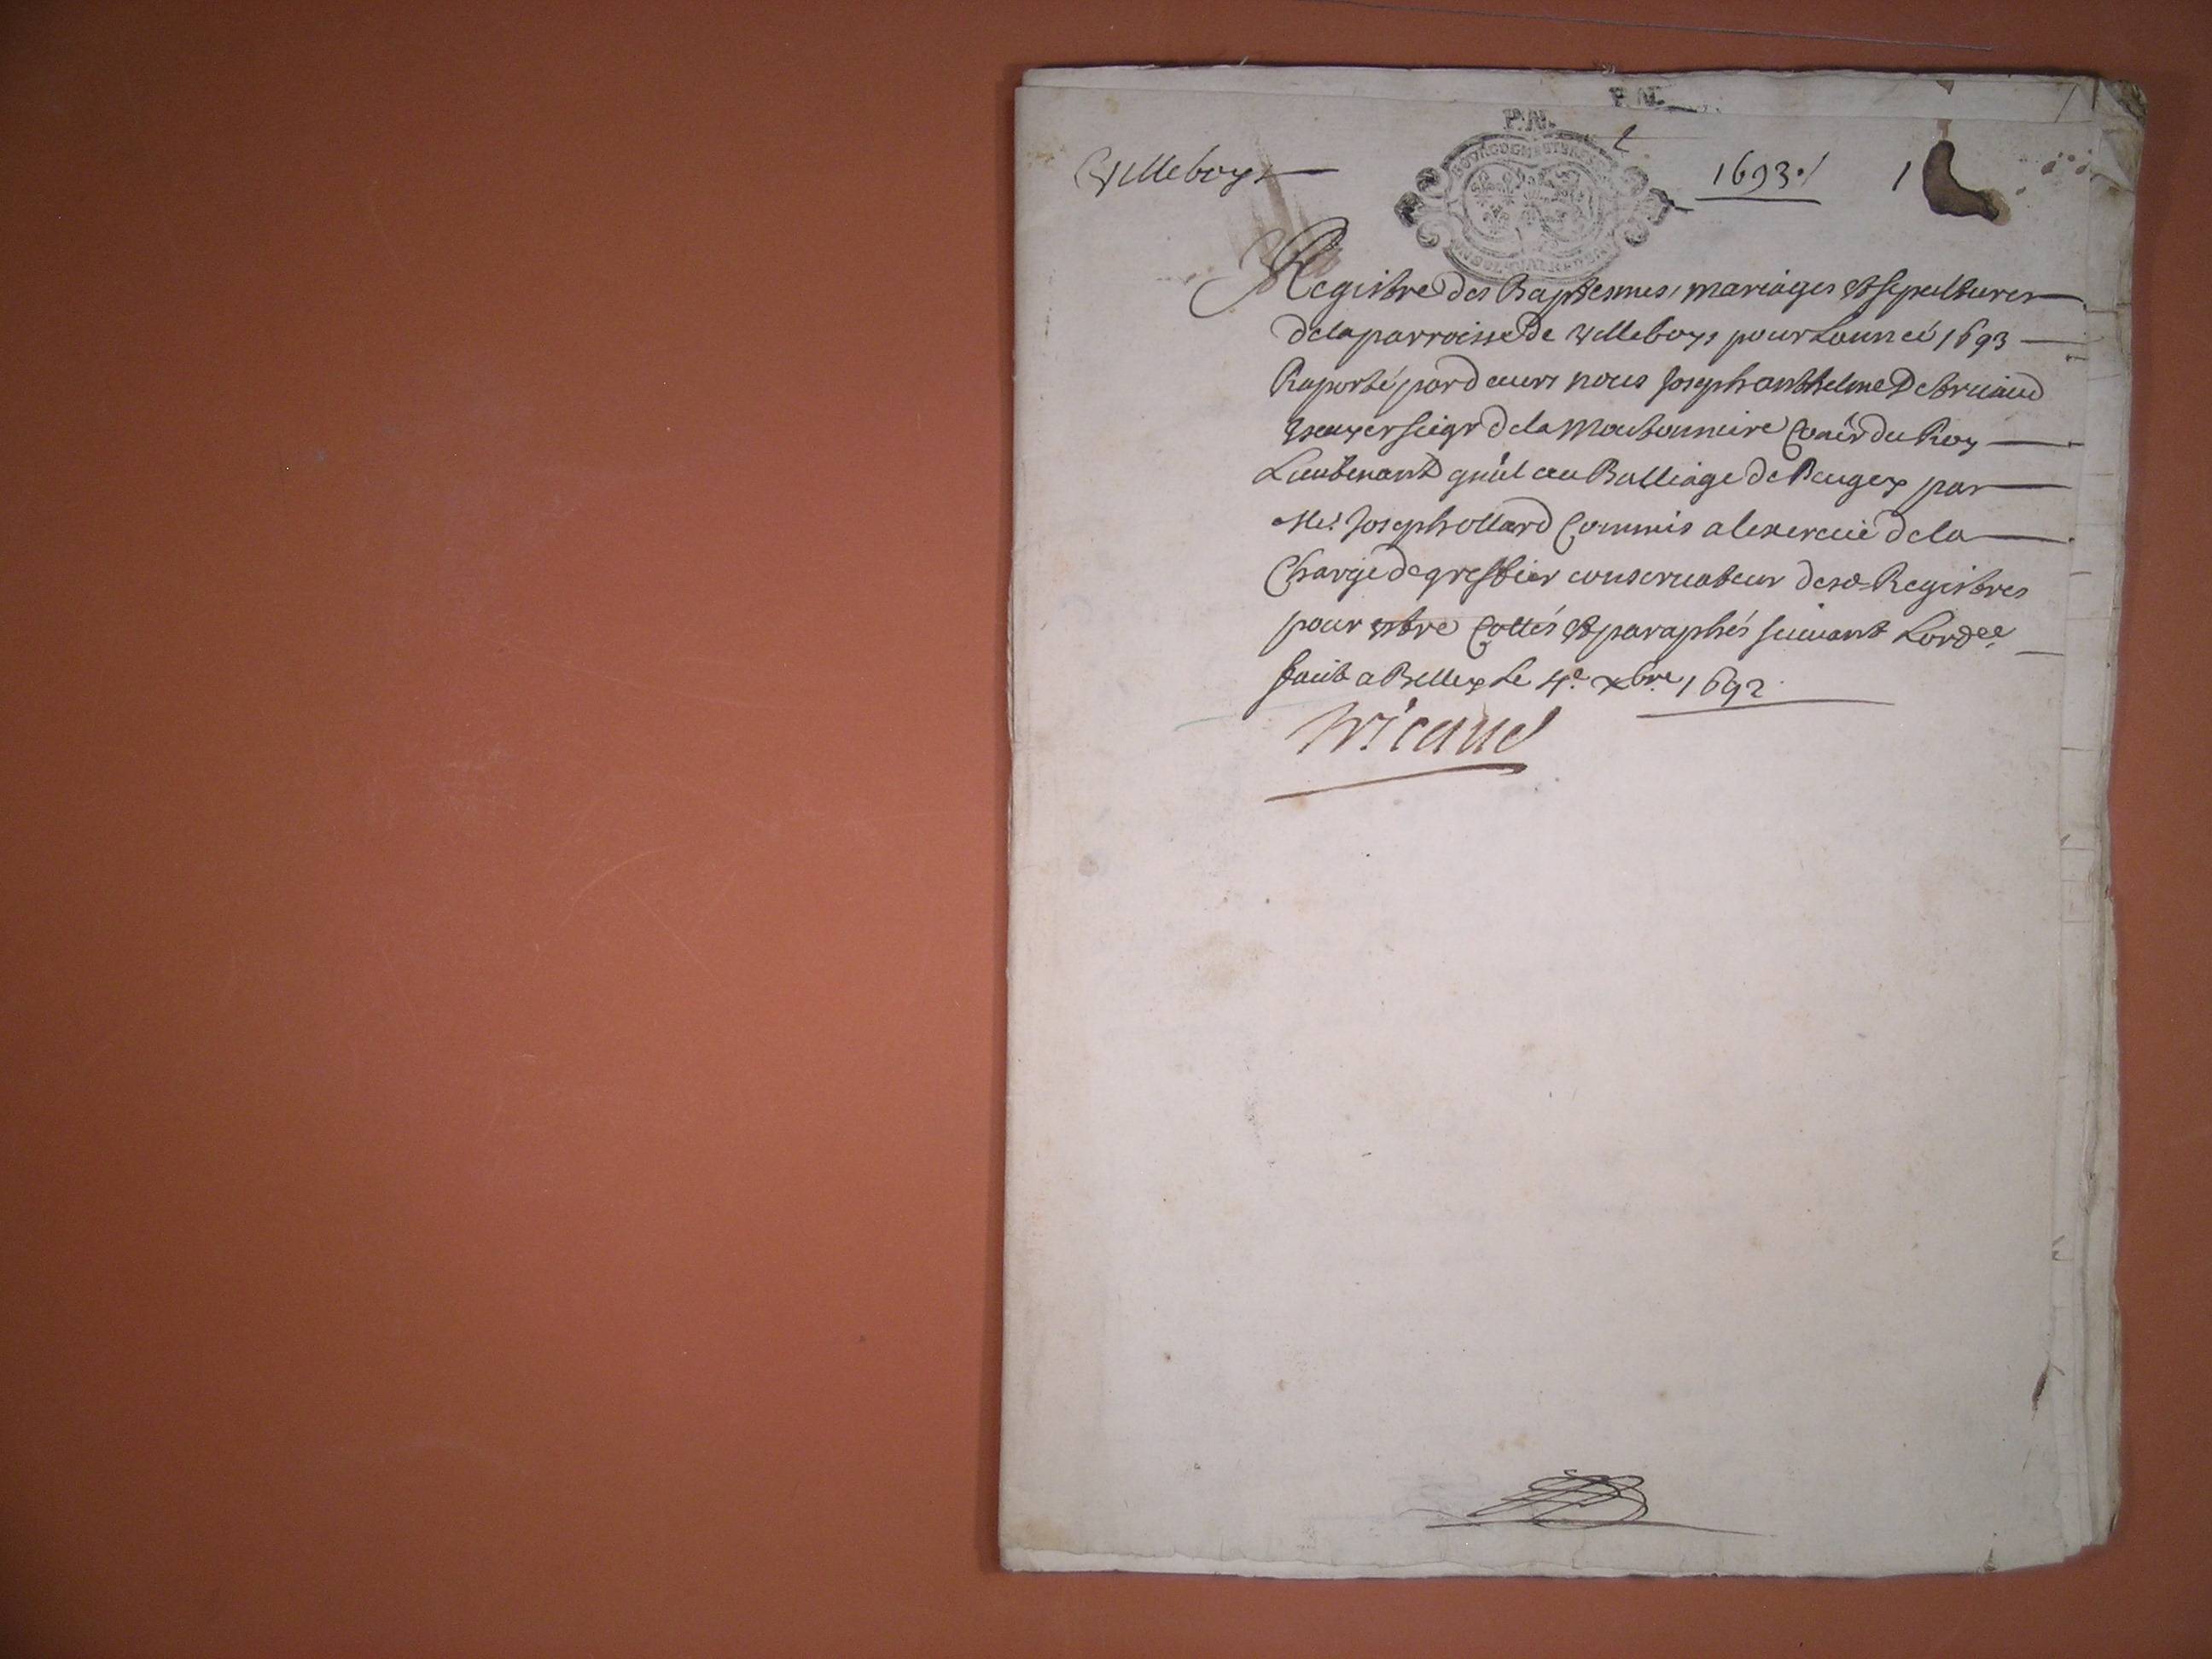 P.N.
P.N.
Villeboys
1693 1
BOURGOGNE ET BRESSE
Registre des Baptesmes, mariages et sepultures
de la parroisse de Villeboys pour Lanneé 1693
Raporté pardeuers nous Joseph anthelme De briaud
Escuyer seigr de la Moutonniere Coner du Roy
Lieutenant gnal au Balliage de Beugey par
Me. Joseph ollard Commis a lexercice de la
Charge de greffier conseruateur desd Registres
pour estre Cottés et paraphés suiuant Lordce
faict a Belley Le 4e. xbre. 1692